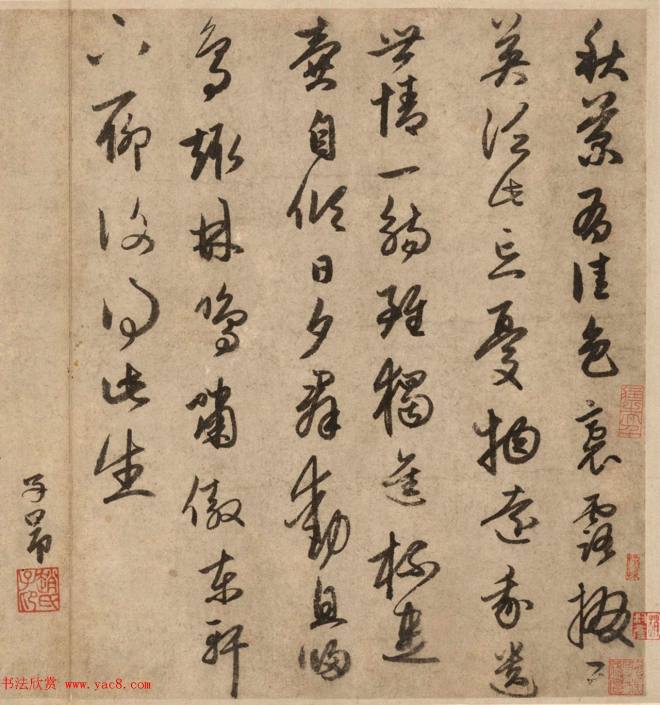 秋菊有佳色裛露掇其
英泛此忘憂物遠我遺
世情一觴雖獨進杯盡
壺自傾日夕群動息歸
鳥趨林鳴嘯傲東軒
下聊復得此生
子昂
趙氏子昂
书法欣赏 www.yac8.com